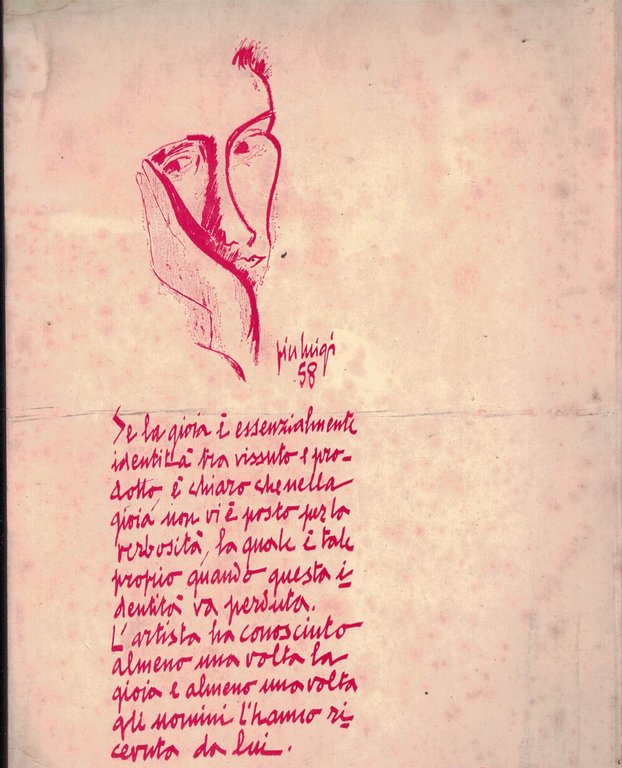 pierluigi
58
Se la gioia è essenzialmente
identità tra vissuto e pro-
dotto, è chiaro che nella
gioia non vi è posto per la
verbosità, la quale è tale
proprio quando questa i-
dentità va perduta.
L'artista ha conosciuto
almeno una volta la
gioia e almeno una volta
gli uomini l'hanno ri-
cevuta da lui.